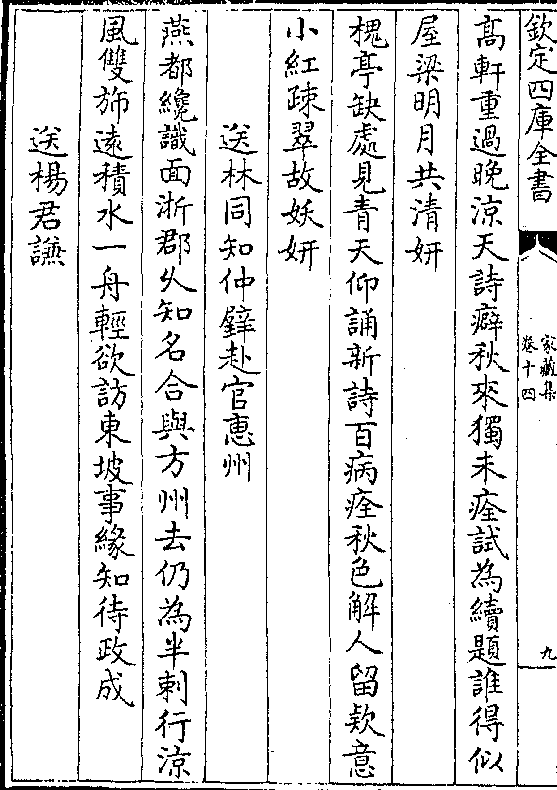 欽定四庫全書
家藏集
卷十四
九
髙軒重過晚涼天詩癖秋來獨未痊試為續題誰得似
屋梁明月共清妍
槐亭缺處見青天仰誦新詩百病痊秋色解人留欵意
小紅疎翠故妖妍
送林同知仲璧赴官惠州
燕都纔識面浙郡乆知名合與方州去仍為半刺行涼
風雙斾逺積水一舟輕欲訪東坡事緣知待政成
送楊君謙